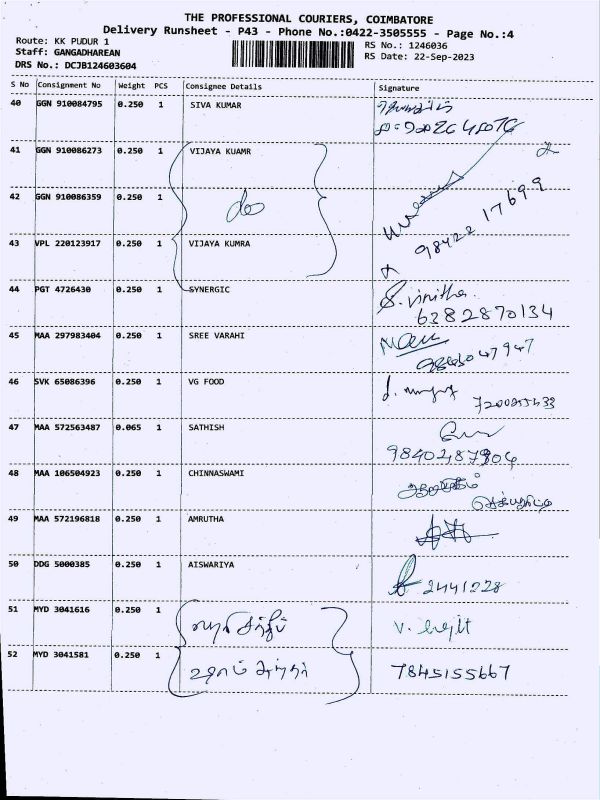 THE PROFESSIONAL COURIERS, COIMBATORE
Delivery Runsheet - P43 - Phone No.:0422-3505555 - Page No.:4
Route: KK PUDUR 1 RS No.: 1246036
Staff: GANGADHAREAN RS Date: 22-Sep-2023
DRS No.: DCJB124603604
S No Consignment No Weight PCS Consignee Details Signature
40 GGN 910084795 0.250 1 SIVA KUMAR
41 GGN 910086273 0.250 1 VIJAYA KUAMR
42 GGN 910086359 0.250 1 do 98422 17699
43 VPL 220123917 0.250 1 VIJAYA KUMRA
44 PGT 4726430 0.250 1 SYNERGIC S. Vinitha
6382870134
45 MAA 297983404 0.250 1 SREE VARAHI
46 SVK 65086396 0.250 1 VG FOOD
47 MAA 572563487 0.065 1 SATHISH
48 MAA 106504923 0.250 1 CHINNASWAMI
49 MAA 572196818 0.250 1 AMRUTHA
50 DDG 5000385 0.250 1 AISWARIYA 2441228
51 MYD 3041616 0.250 1
52 MYD 3041581 0.250 1 7845155667